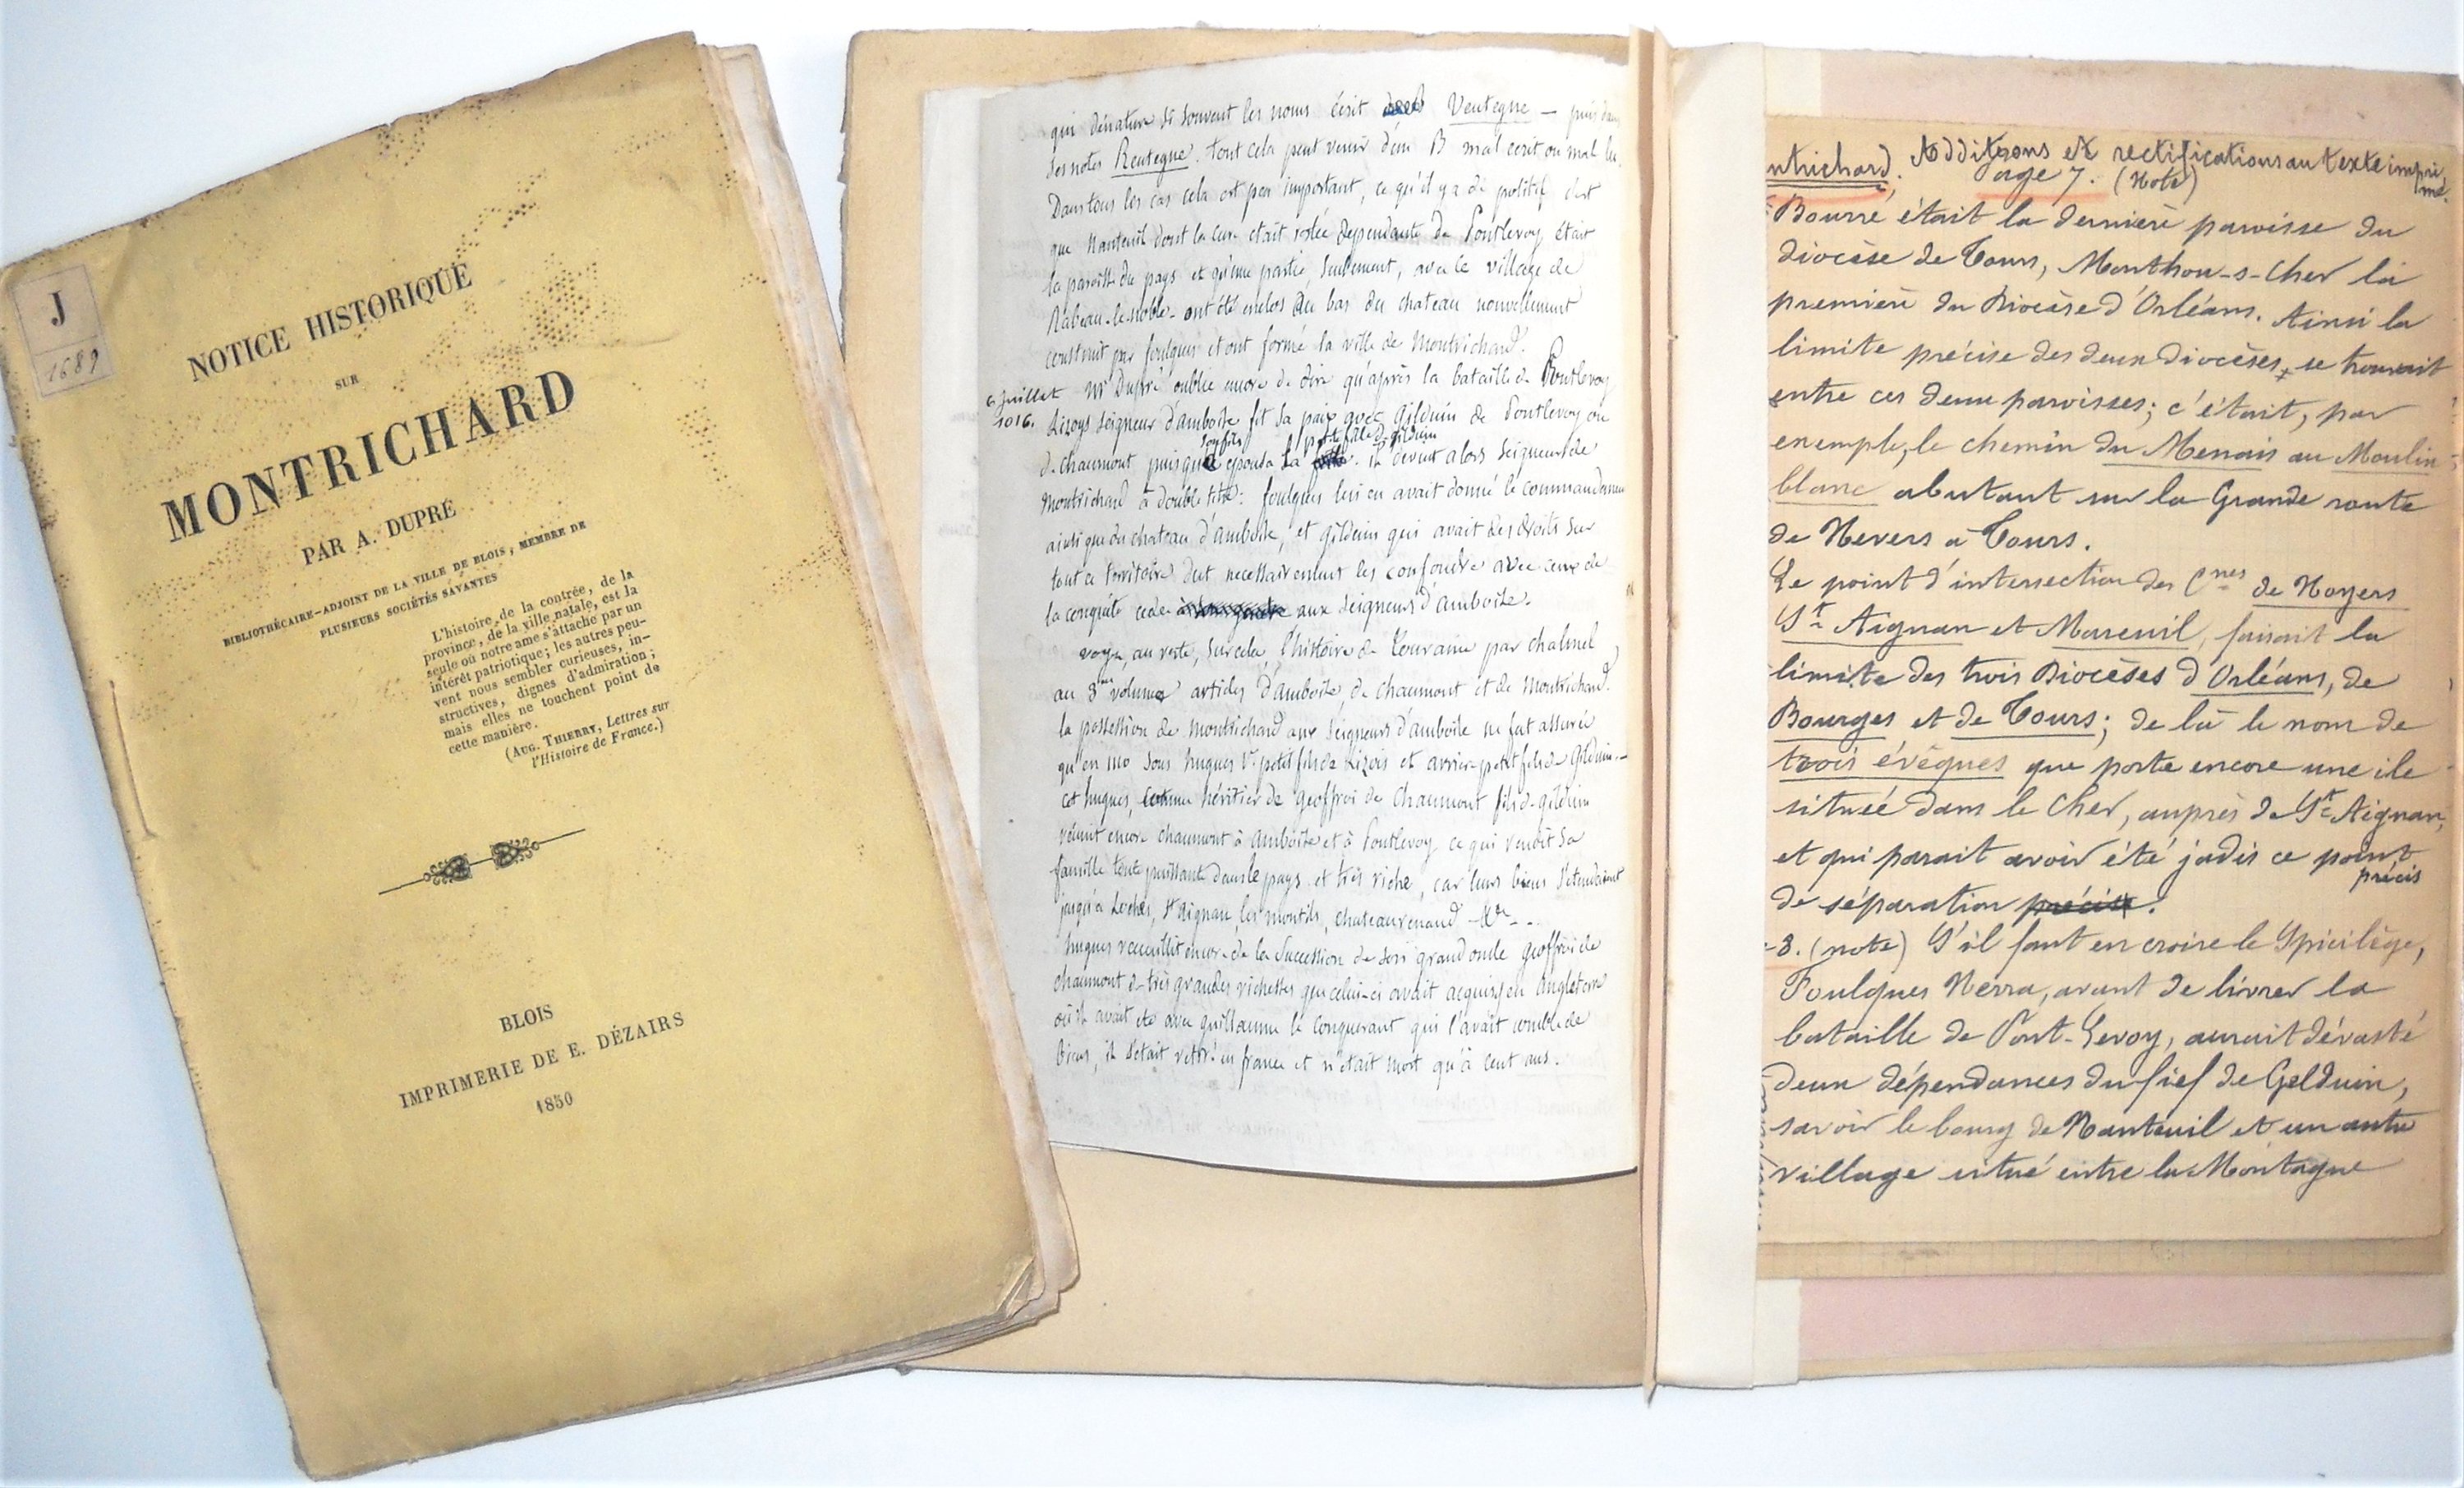 J
1689
NOTICE HISTORIQUE
SUR
MONTRICHARD
PAR A. DUPRÉ
BIBLIOTHÉCAIRE-ADJOINT DE LA VILLE DE BLOIS, MEMBRE DE
PLUSIEURS SOCIÉTÉS SAVANTES
L'histoire de la contrée, de la
province, de la ville natale, est la
seule où notre ame s'attache par un
intérêt patriotique; les autres peu-
vent nous sembler curieuses, in-
structives, dignes d'admiration;
mais elles ne touchent point de
cette manière.
(AUG. THIERRY, Lettres sur
l'Histoire de France.)
BLOIS
IMPRIMERIE DE E. DÉZAIRS
1850
qui dénature si souvent les noms écrit Ventegne — puis dans
ses notes Rentegne. tout cela peut venir d'un B mal écrit ou mal lu.
Dans tous les cas cela est peu important, ce qu'il y a de positif c'est
que Nanteuil dont la cure était restée dépendante de Pontlevoy était
la paroisse du pays et qu'une partie seulement, avec le village de
Nabeau-le-noble - ont été enclos du bas du chateau nouvellement
construit par foulques et ont formé la ville de Montrichard.
6 Juillet
1016.
Mr Dupré oublie encore de dire qu'après la bataille de Pontlevoy
Lizoys seigneur d'amboise fit sa paix avec Gilduin de Pontlevoy ou
son fils la petite fille de Gilduin
de chaumont puisque épousa . il devint alors seigneur de
Montrichard à double titre: foulques lui en avait donné le commandement
ainsi que du chateau d'amboise, et Gilduin qui avait des droits sur
tout ce territoire dut necessairement les confondre avec ceux de
la conquête cedée aux seigneurs d'amboise.
voyez, au reste, sur cela, l'histoire de Touraine par chalmel
au 3me volume articles d'amboise, de chaumont et de Montrichard.
la possession de Montrichard aux seigneurs d'amboise ne fut assurée
qu'en 1110 sous hugues 1er petit fils de Lizois et arrière-petit fils de Gilduin.—
cet hugues, comme héritier de geoffroi de Chaumont fils de gilduin
réunit encore chaumont à amboise et à Pontlevoy ce qui rendit sa
famille toute puissante dans le pays et très riche, car leurs biens s'etendaient
jusqu'à Loches, St Aignan, les montils, chateaurenaud
hugues recueillit encore de la succession de son grand oncle geoffroi de
chaumont de très grandes richesses que celui-ci avait acquis en Angleterre
où il avait été avec guillaume le conquerant qui l'avait comblé de
biens, il s'était retiré en france et n'était mort qu'à cent ans.
ntrichard. Additions et rectifications au texte impri
mé.
age 7. (Note)
Bourré était la dernière paroisse du
diocèse de Tours, Monthou-s-Cher la
première du Diocèse d'Orléans. Ainsi la
limite précise des deux diocèses se trouvait
entre ces deux paroisses; c'était, par
exemple, le chemin du Menais au Moulin
blanc abutant sur la Grande route
de Nevers à Tours.
Le point d'intersection des Cnes de Noyers
St Aignan et Mareuil, faisait la
limite des trois Diocèses d'Orléans, de
Bourges et de Tours; de là le nom de
trois évêques que porte encore une île
située dans le Cher, auprès de St Aignan,
et qui parait avoir été jadis ce point
précis
de séparation précis.
-8. (note) S'il faut en croire le Spicilège,
Foulques Nerra, avant de livrer la
bataille de Pont-Levoy, aurait dévasté
deux dépendances du fief de Gelduin,
savoir le bourg de Nanteuil et un autre
village situé entre la Montagne